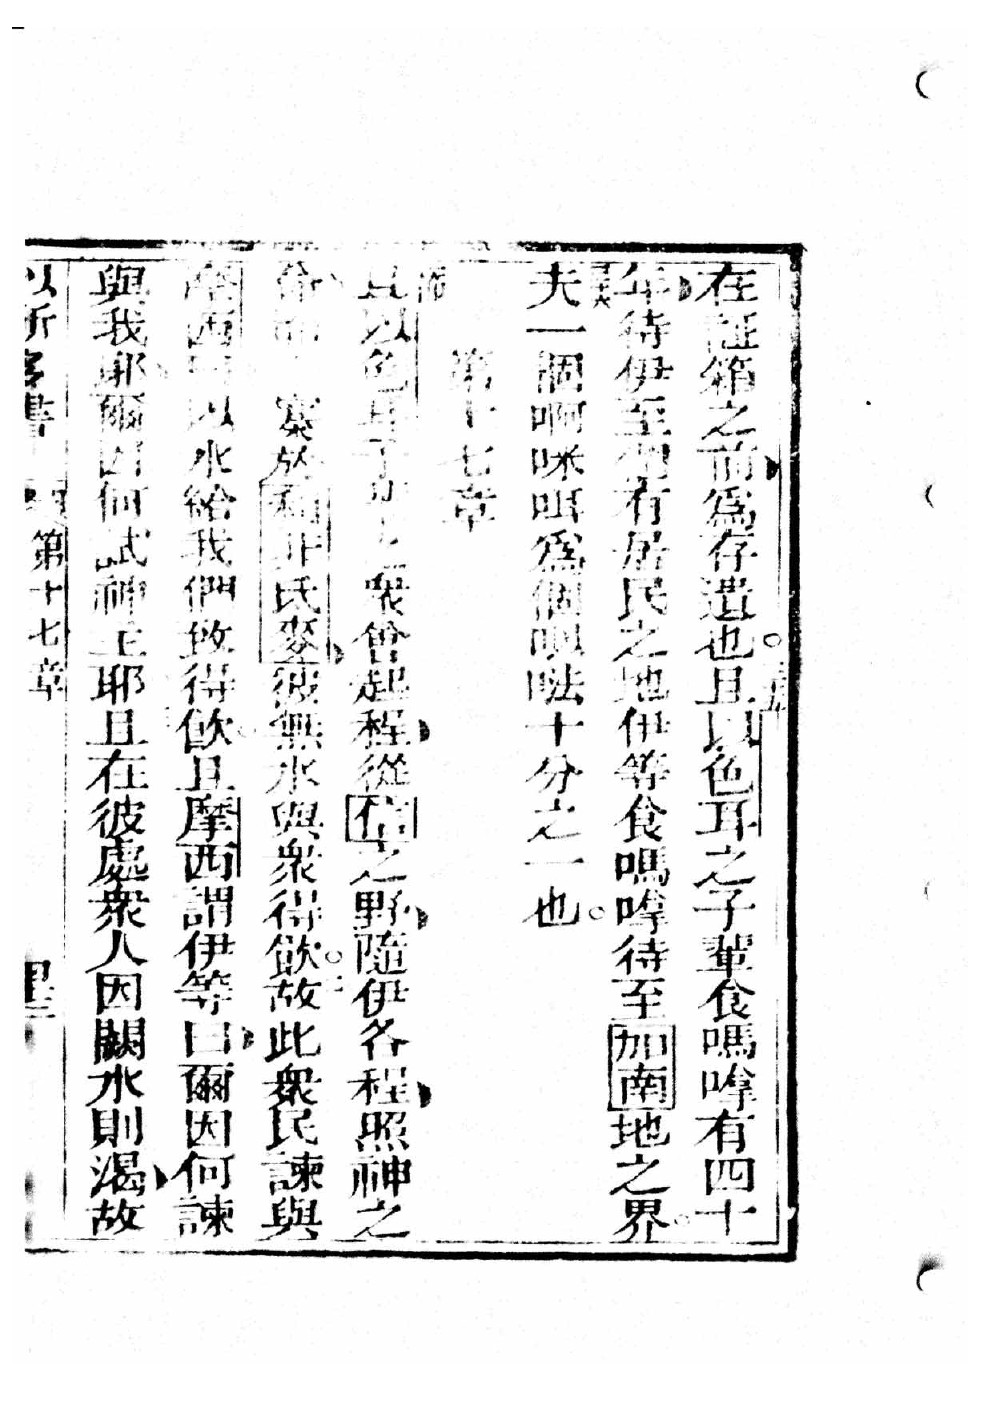 在証箱之前爲存遺也○且以色耳之子輩食嗎嗱有四十
年待伊至有居民之地伊等食嗎嗱待至加南地之界○
夫一個啊咪咡爲個唄㖠十分之一也○
第十七章
且以色耳子之衆會起程從信之野隨伊各程照神之
命而寨於利非氏麥彼無水與衆得飲○故此衆民諫與
摩西曰以水給我們致得飲○且摩西謂伊等曰爾因何諫
與我耶爾因何試神主耶且在彼處衆人因闕水則渴故
以所多書 第十七章